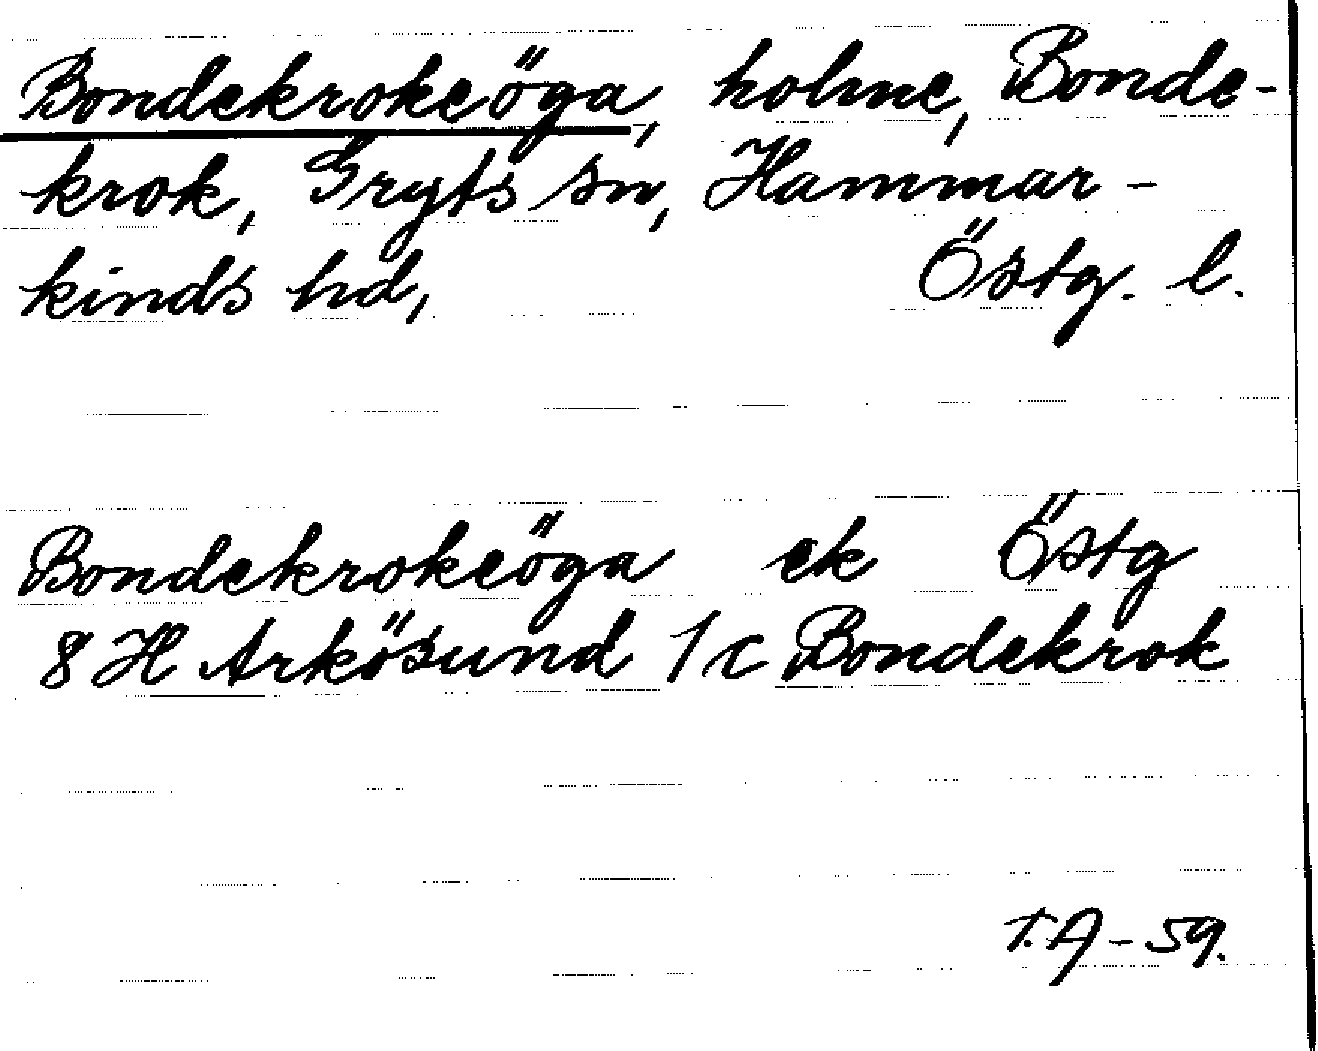 Bondekrokeöga, holme, Bonde-
krok, Gryts sn, Hammar-
kinds hd, Östg. l.
Bondekrokeöga ek Östg
8 H Arkösund 1 c Bondekrok
T.A-59.